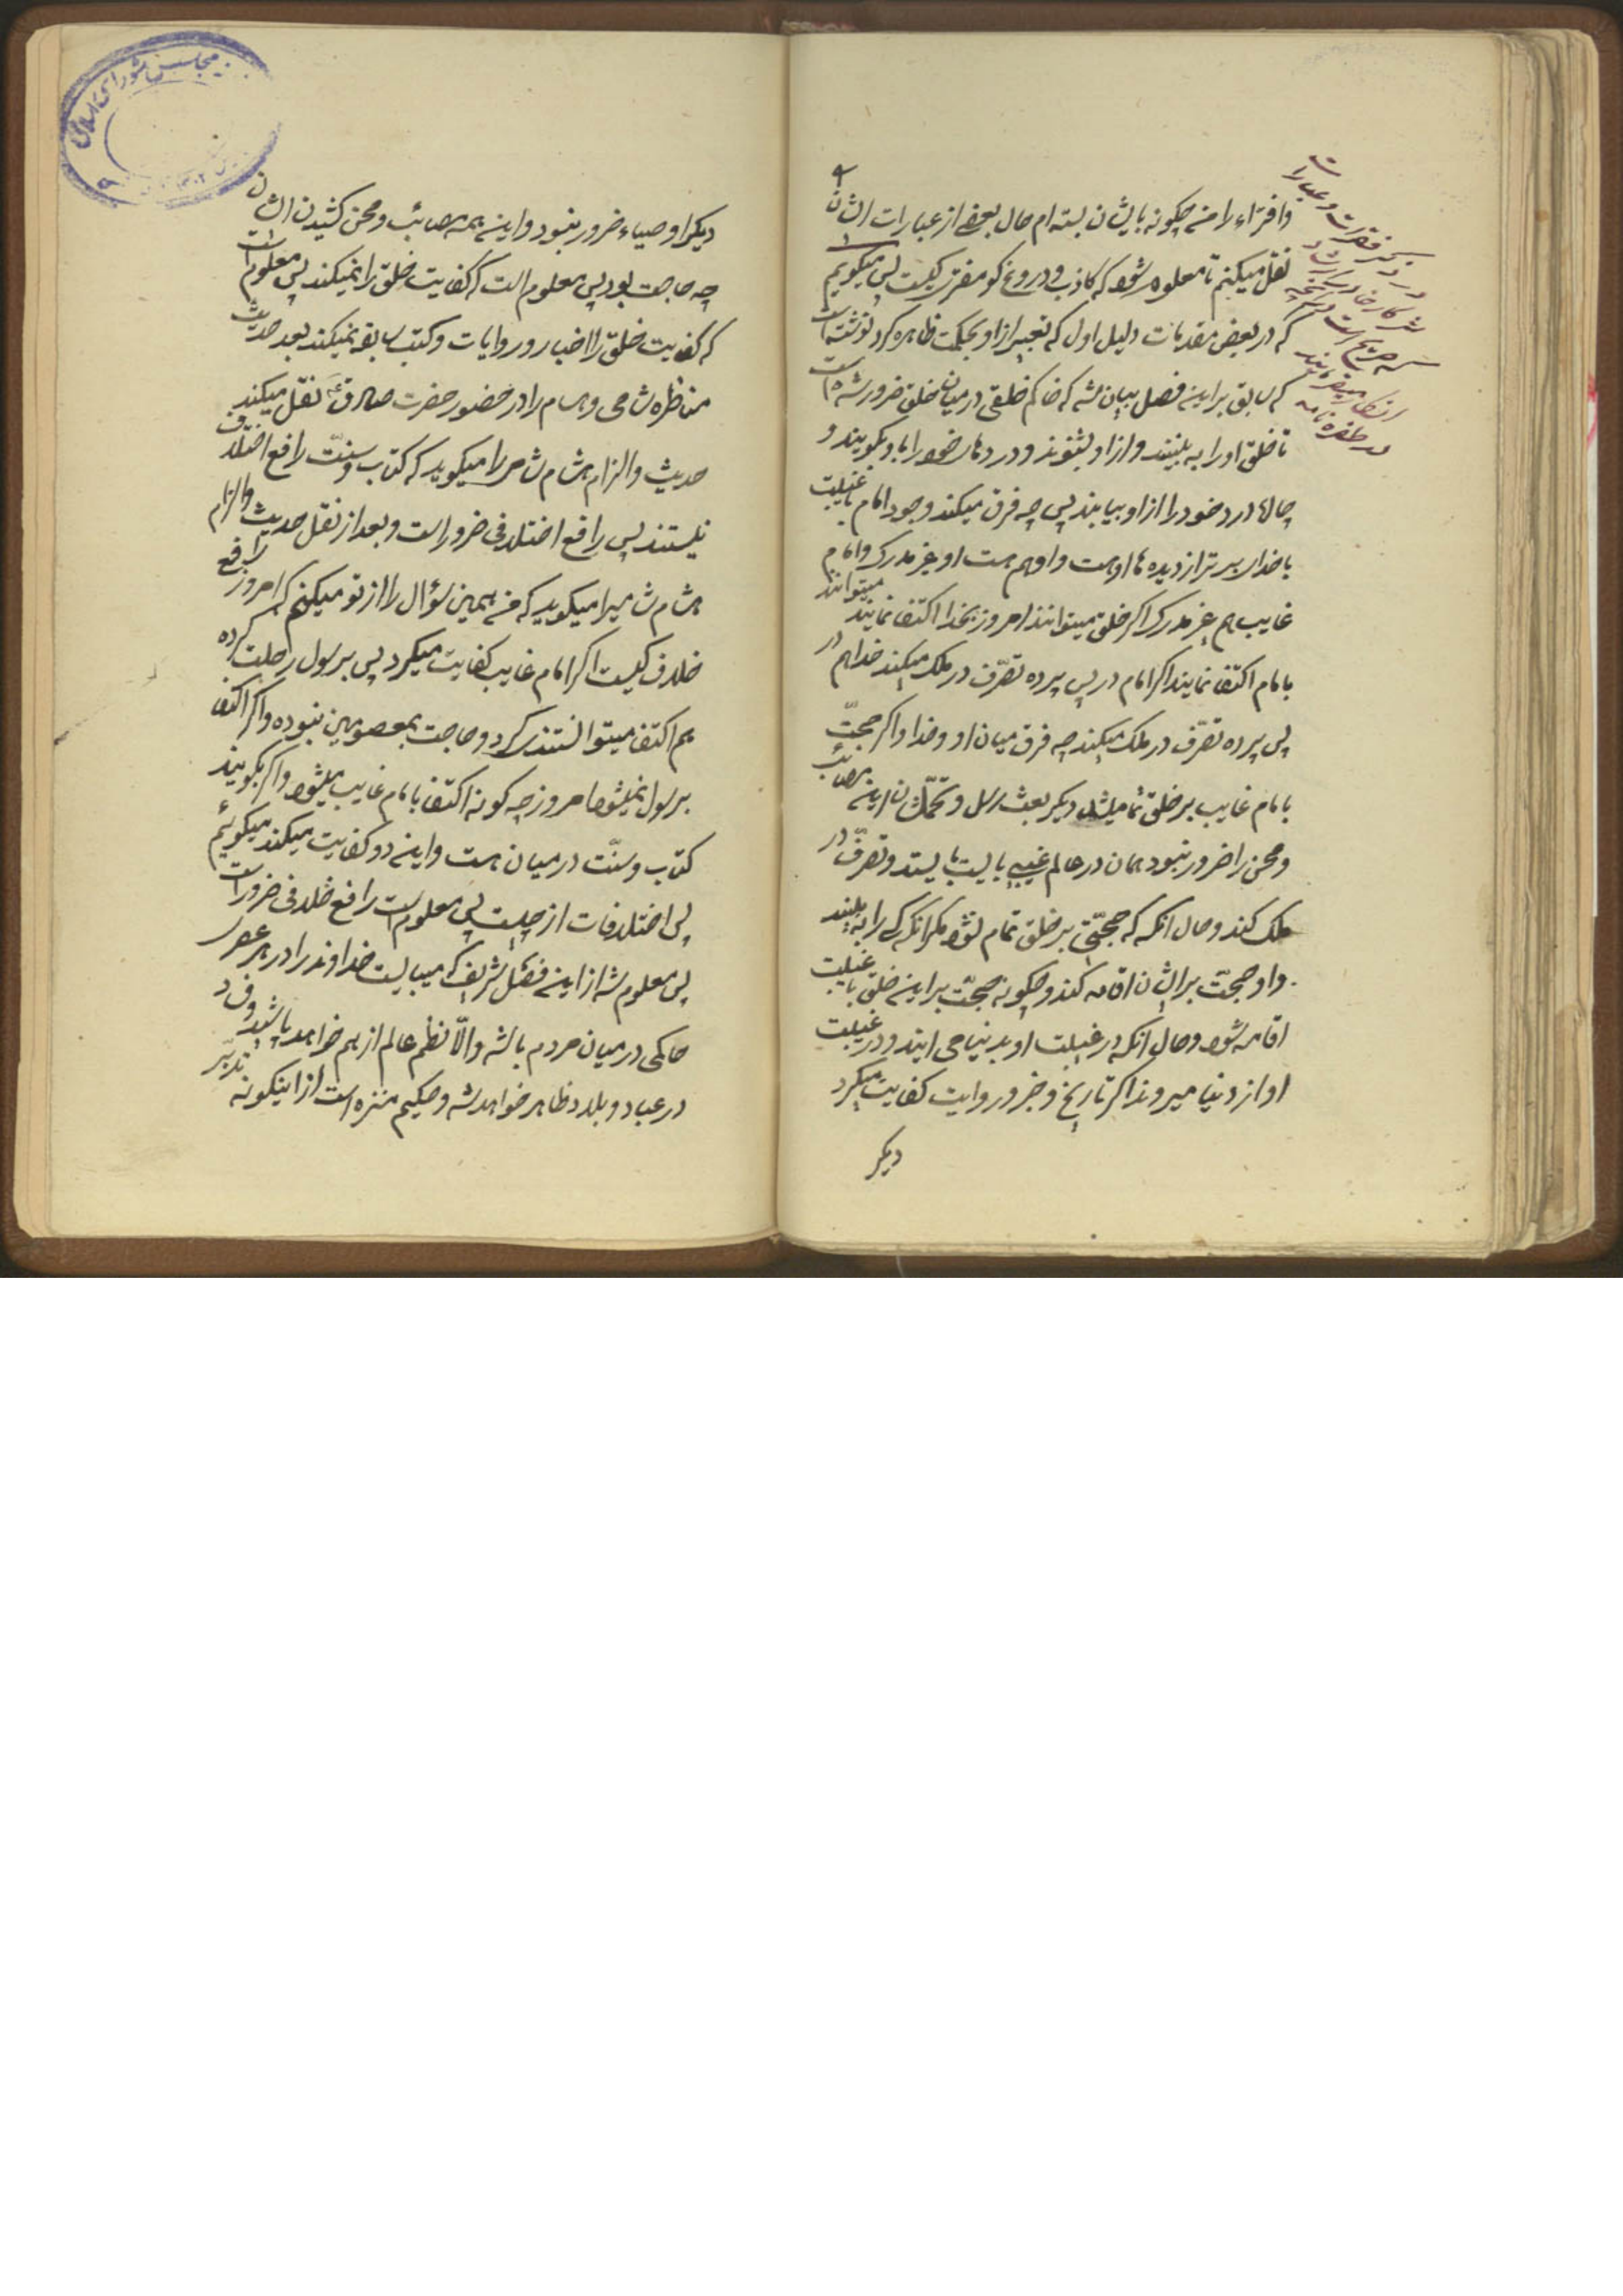 وافتراء را من چکونه بایشان بسته‌ام حال بعضی از عبارات ایشان
نقل میکنم تا معلوم شود که کاذب و دروغ کو مفتری کیست پس میکویم
که در بعض مقدمات دلیل اول که تعبیر از او بحکمت ظاهره کرده نوشته است
که سابق بر این فصل بیان شد که حاکم خلقی در میان خلق ضرور شده است
تا خلق او را به بینند و از او بشنوند و دردهای خود را باو بکویند و
چاره درد خود را از او بیابند پس چه فرق میکند وجود امام با غیبت
با خدا برتر از دیده‌ها اوست و او هم هست او غیر مدرک و امام
غایب هم غیر مدرک اکر خلق میتوانند امروز بخدا اکتفا نمایند میتوانند
بامام اکتفا نمایند اکر امام در پس پرده تصرّف در ملک میکند خدا هم در
پس پرده تصرّف در ملک میکند چه فرق میان او و خدا و اکر حجّت
بامام غایب بر خلق تمام میشد دیکر بعث رسل و تحمّلشان این مصائب
و محن را ضرور نبود همان در عالم غیب بایست بایستد و تصرّف در
ملک کند و حال آنکه که حجّتی بر خلق تمام نشود مکر آنکه کسی را به بینند
و او حجّت بر ایشان اقامه کند و چکونه حجّت بر این خلق با غیبت
اقامه شود و حال انکه در غیبت او بدنیا می ایند و در غیبت
او از دنیا میروند اکر تاریخ و خبر و روایت کفایت میکرد
دیکر
دیکر اوصیاء ضرور نبود و این همه مصائب و محن کشیدن ایشان
چه حاجت بود پس معلوم است که کفایت خلق را نمیکند پس معلوم است
که کفایت خلق را اخبار و روایات و کتب سابقه نمیکند بعد حدیث
مناظره شامی و هشام را در حضور حضرت صادق ع نقل میکند
حدیث و الزام هشام شامی را میکوید که کتاب و سنّت رافع اختلاف
نیستند پس رافع اختلافی ضرور است و بعد از نقل حدیث و الزام
هشام شامی را میکوید که من همین سؤال را از تو میکنم که امروز رافع
خلاف کیست اکر امام غایب کفایت میکرد پس برسول رحلت کرده
هم اکتفا میتوانستند کرد و حاجت بمعصومین نبوده و اکر اکتفا
برسول نمیشود امروز چه کونه اکتفا بامام غایب میشود و اکر بکویند
کتاب و سنّت در میان هست و این دو کفایت میکند میکوئیم
پس اختلافات از چیست پس معلوم است رافع خلافی ضرور است
پس معلوم شد از این فصل شریف که میبایست خداوند را در هر عصر
حاکمی در میان مردم باشد و الّا نظم عالم از هم خواهد پاشید و فساد
در عباد و بلاد ظاهر خواهد شد و حکیم منزه است از اینکونه تدبیر